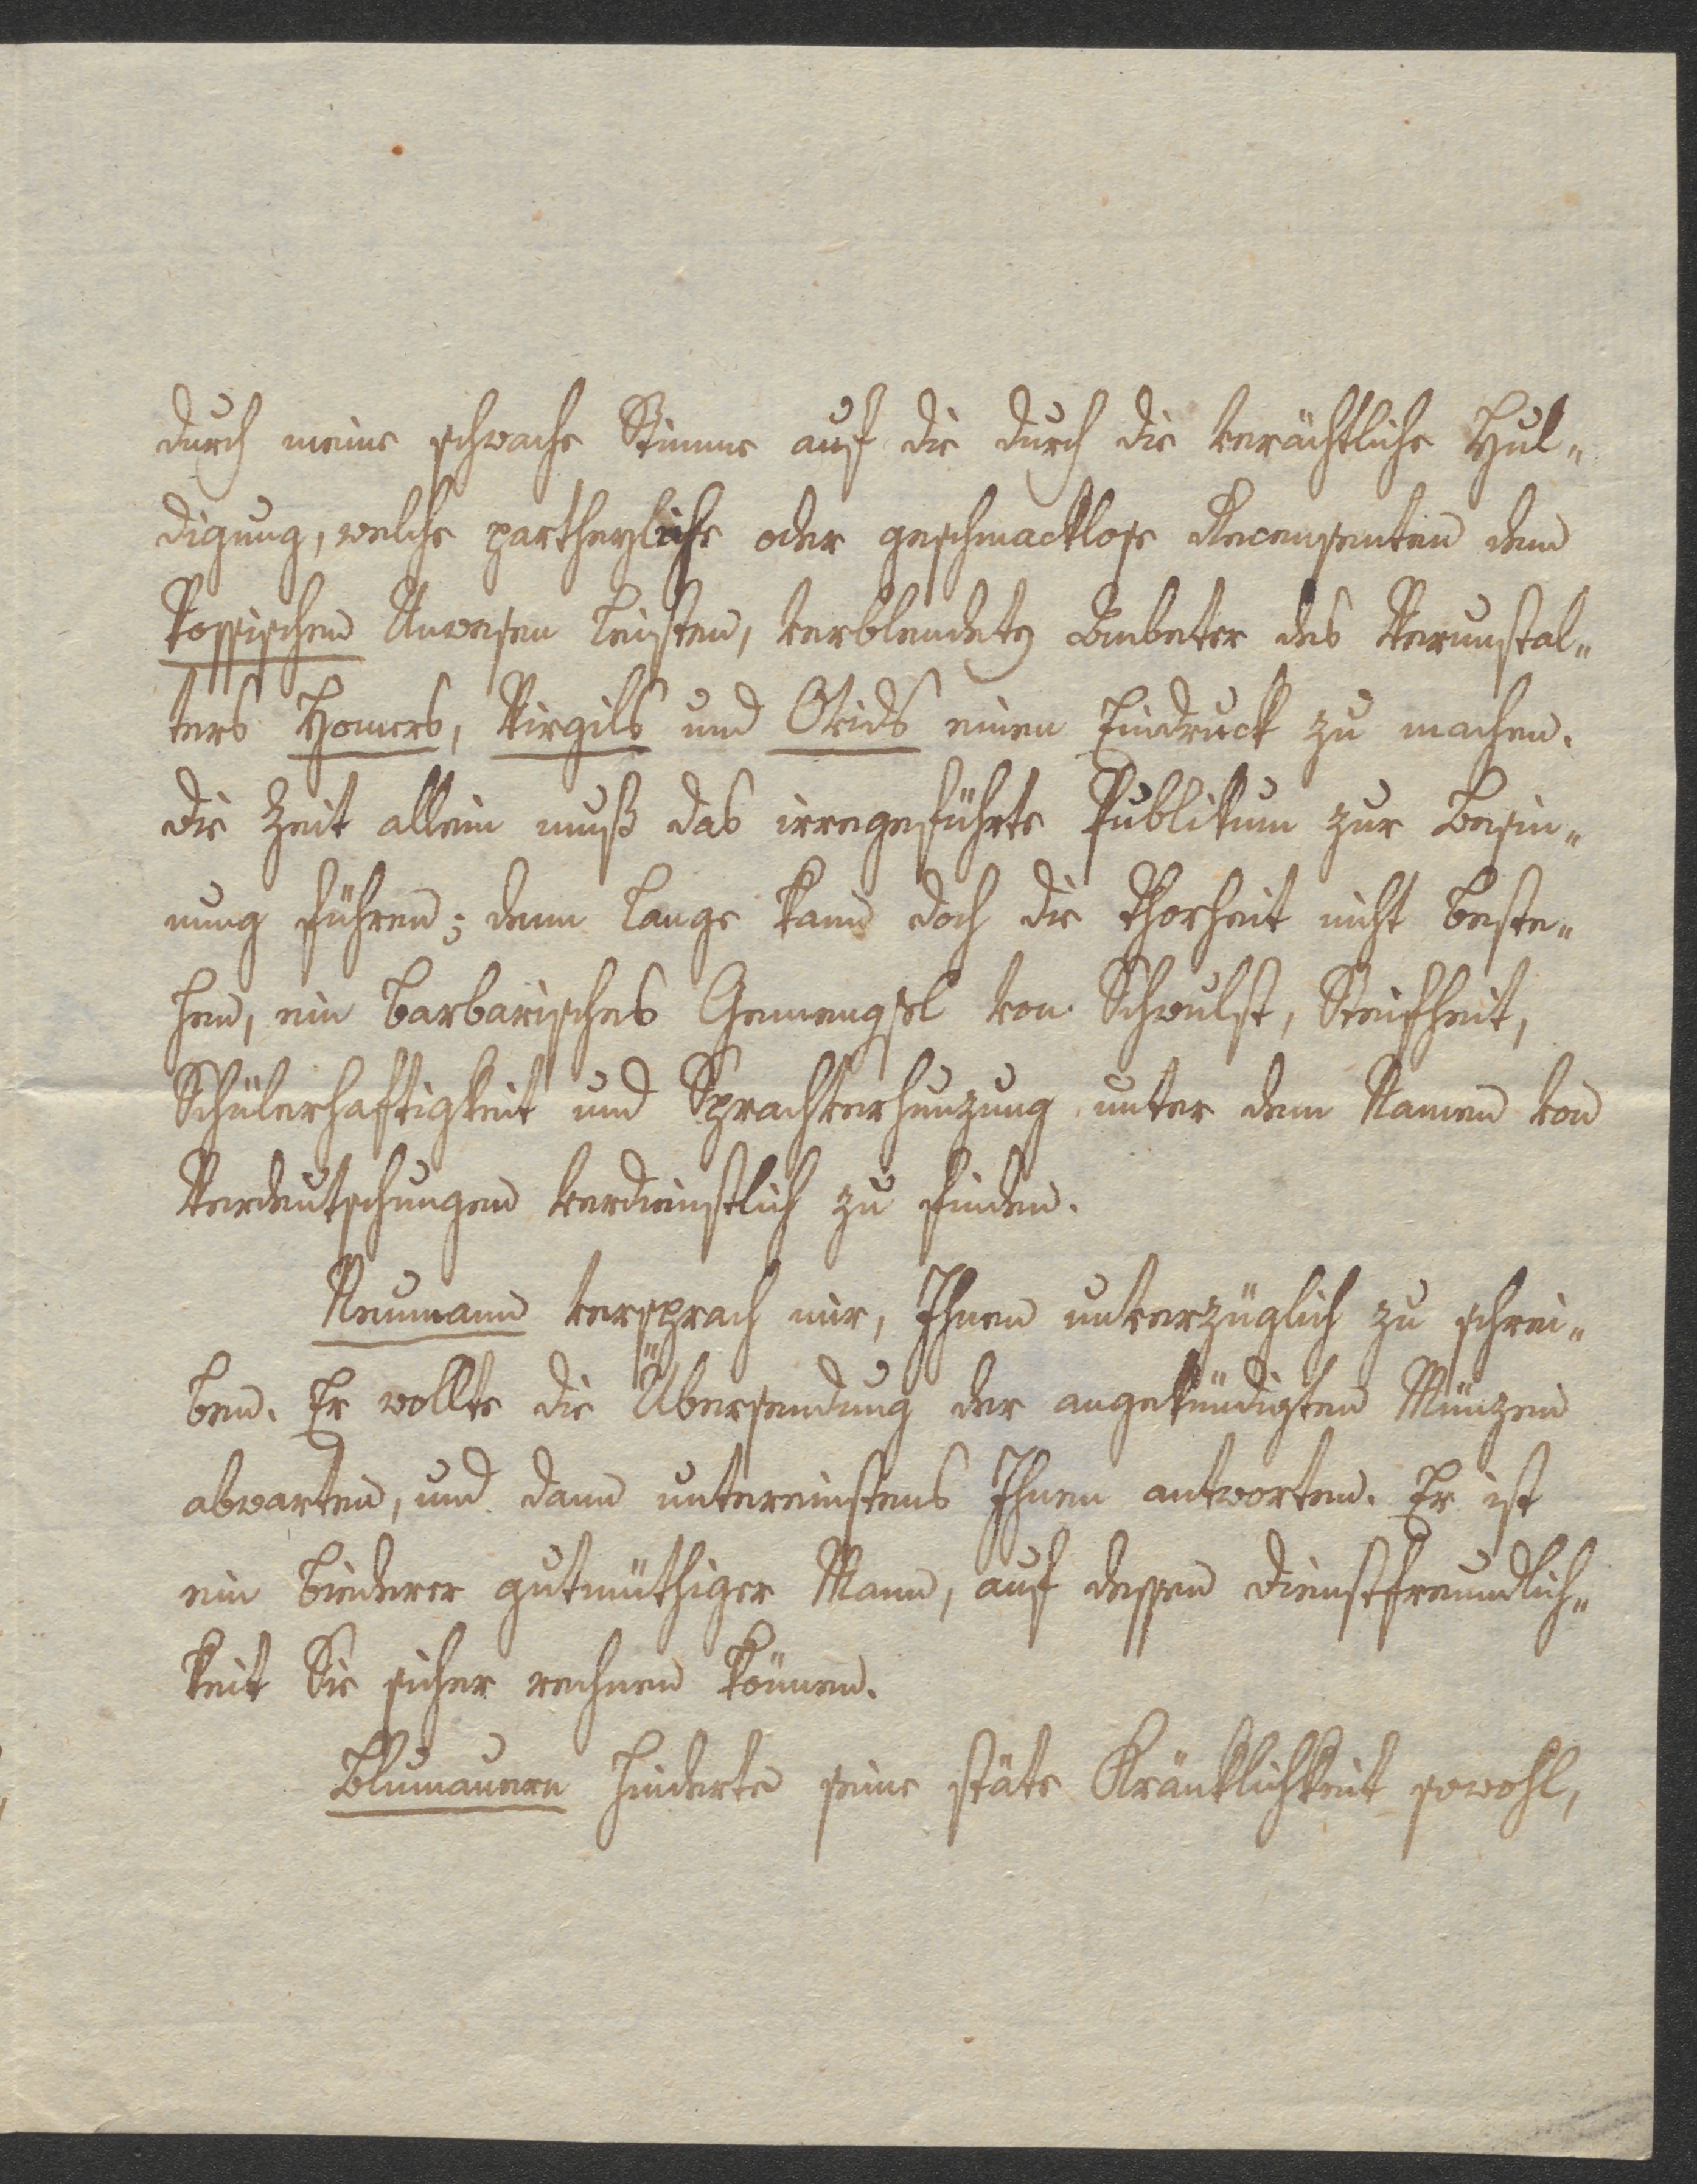 durch meine schwache Stimme auf die durch die verächtliche Hul-
digung, welche partheyliche oder geschmacklose Recensenten dem
Vossischen Unwesen leisten, verblendete Anbeter des Verunstal-
ters Homers, Virgils und Ovids einen Eindruck zu machen.
Die Zeit allein muß das irregeführte Publikum zur Besin-
nung führen; denn lange kann doch die Thorheit nicht beste-
hen, ein barbarisches Gemengsel von Schwulst, Steifheit,
Schülerhaftigkeit und Sprachverhunzung unter dem Namen von
Verdeutschungen verdienstlich zu finden.
Neumann versprach mir, Ihnen unverzüglich zu schrei-
ben. Er wollte die Übersendung der angekündigten Münzen
abwarten, und dann untereinstens Ihnen antworten. Er ist
ein biederer gutmüthiger Mann, auf dessen Dienstfreundlich-
keit Sie sicher rechnen können.
Blumauern hinderte seine stäte Kränklichkeit sowohl,